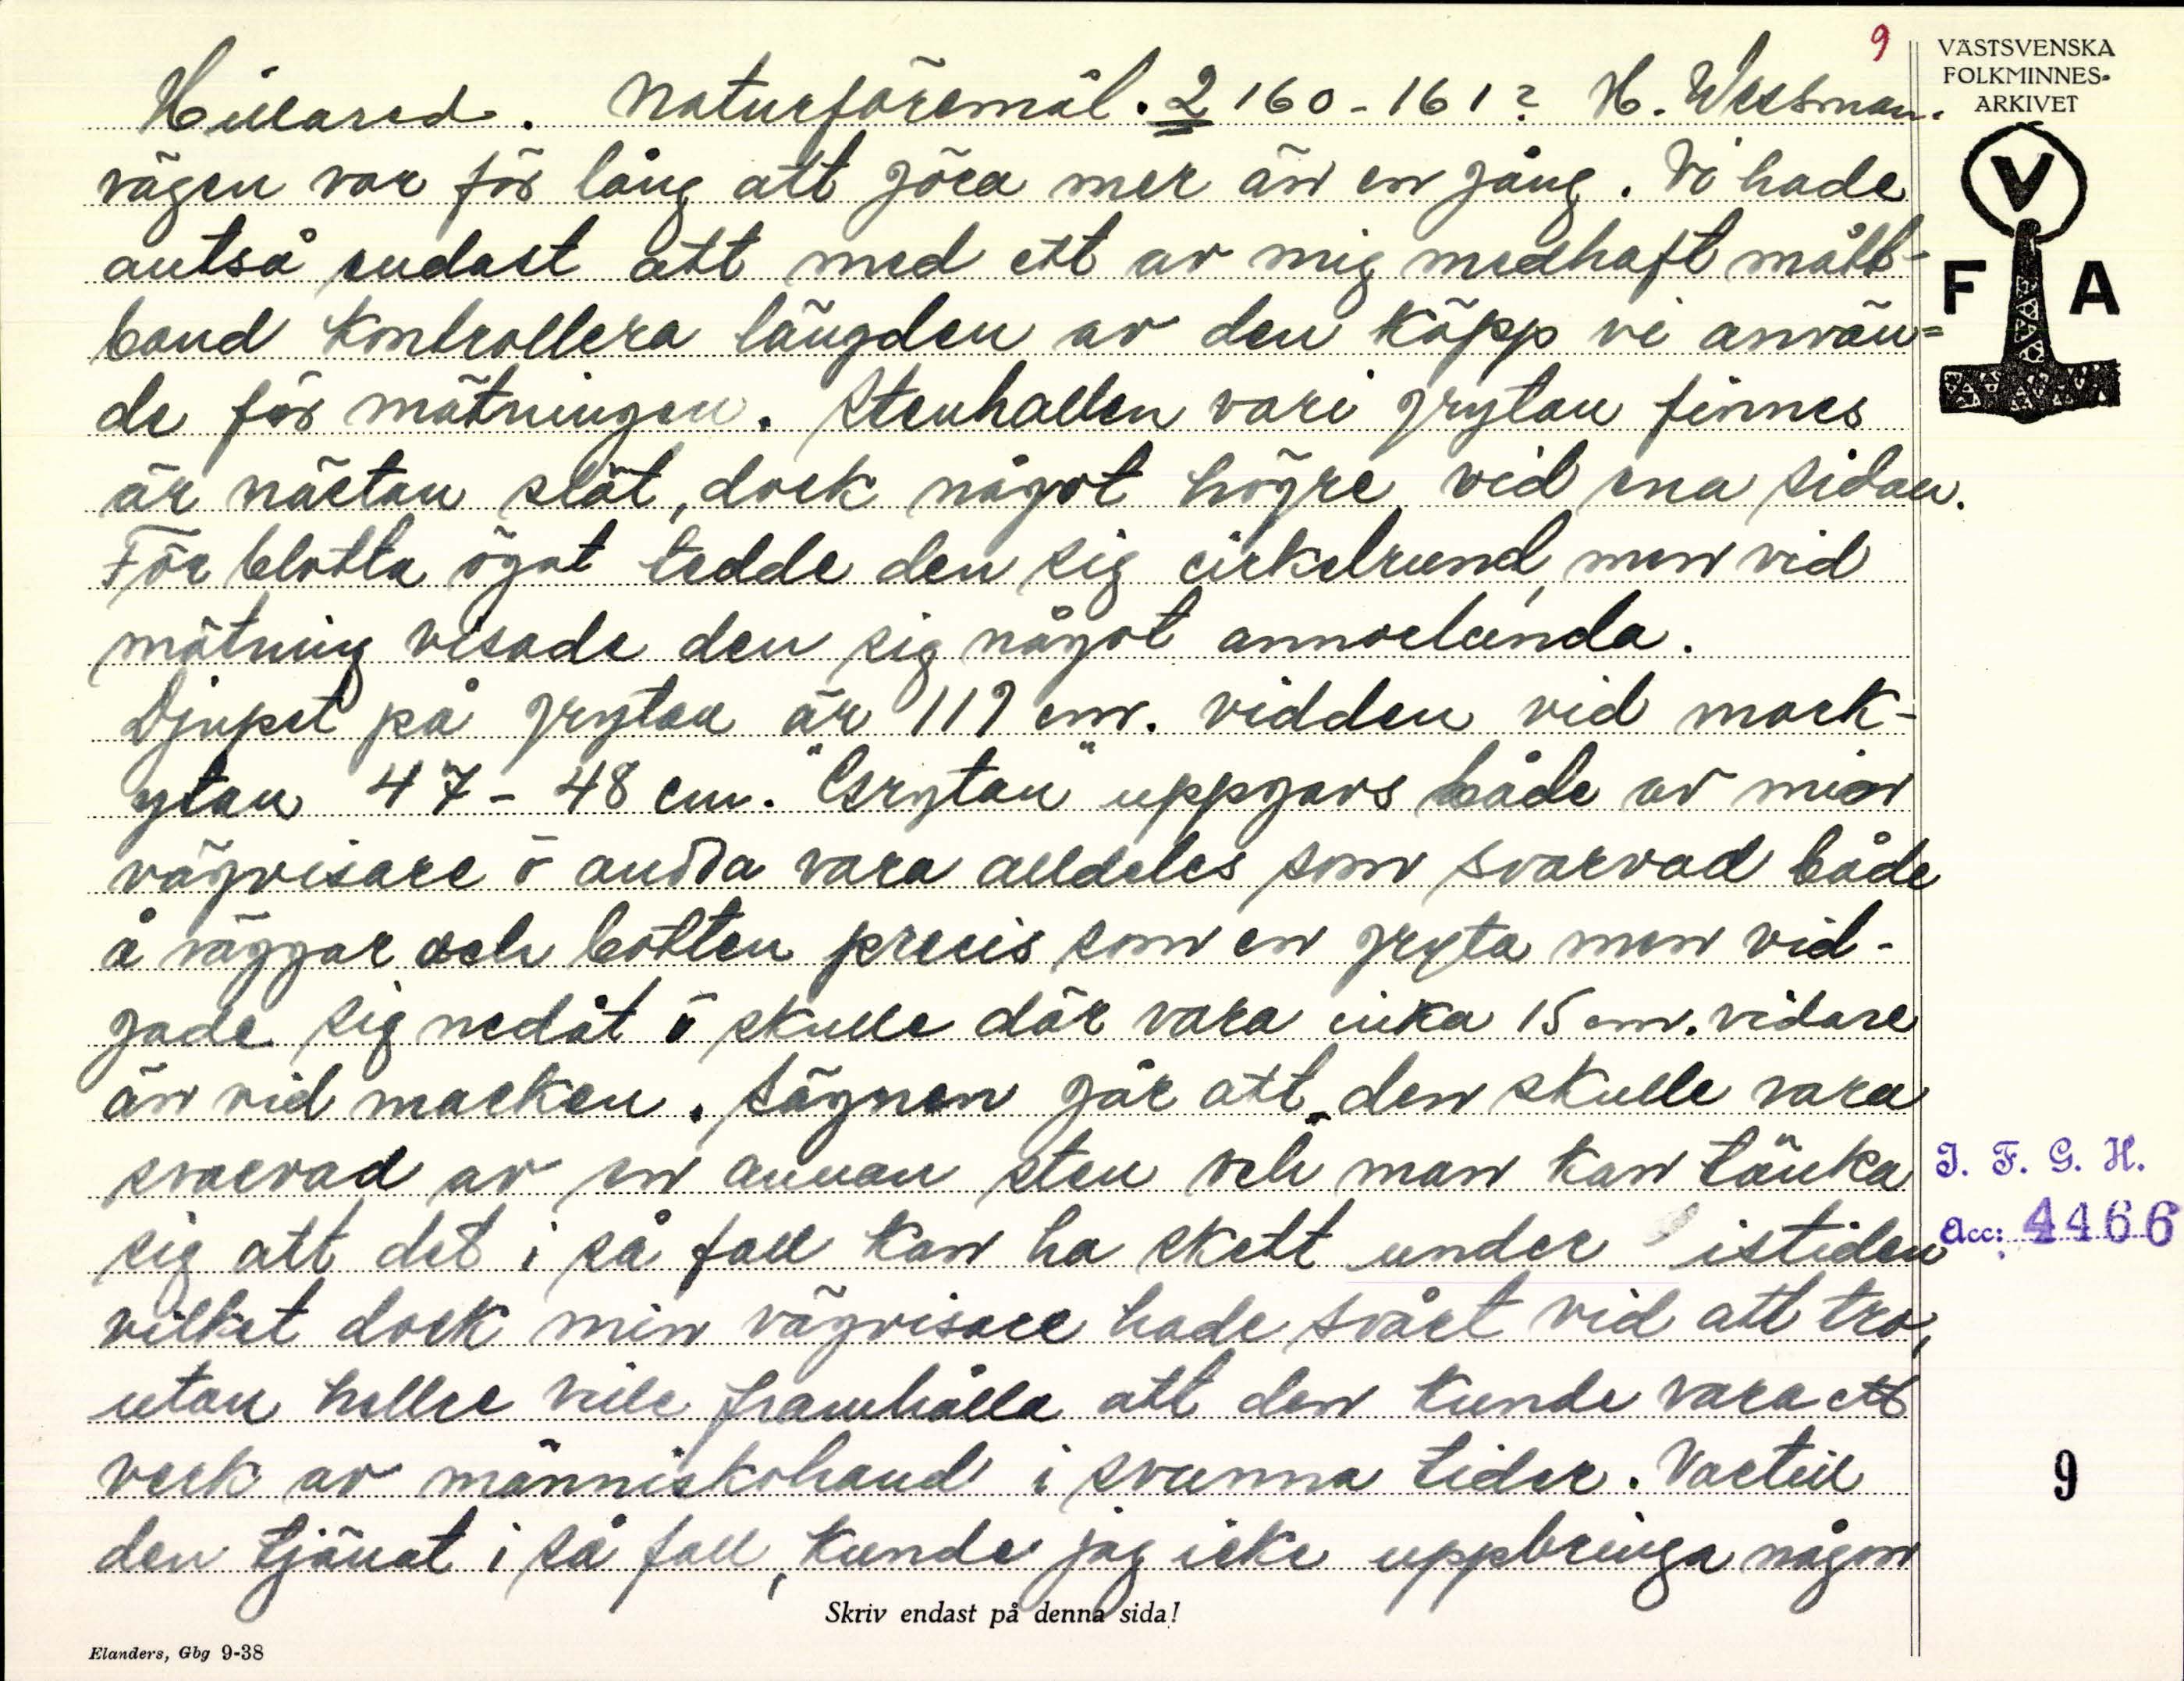 9
Hillared. Naturföremål. 2 160-161? H. Wessman.
VÄSTSVENSKA
FOLKMINNES-
ARKIVET
V
F A
vägen var för lång att göra mer än en gång. Vi hade
altså endast att med ett av mig medhaft mått-
band kontrollera längden av den käpp vi använ=
de för mätningen. Stenhallen vari grytan finnes
är nästan slät, dock något högre vid ena sidan.
För blotta ögat tedde den sig cirkelrund, men vid
mätning visade den sig något annorlunda.
Djupet på grytan är 119 cm. vidden vid mark-
ytan 47-48 cm. "Grytan" uppgavs både av min
vägvisare ö andra vara alldeles som svarvad både
å väggar och botten precis som en gryta men vid-
gade sig nedåt ö skulle där vara cirka 15 cm. vidare
än vid marken. Sägnen går att den skulle vara
svarvad av en annan sten och man kan tänka
sig att det i så fall kan ha skett under istiden
vilket dock min vägvisare hade svårt vid att tro,
utan hellre ville framhålla att den kunde vara ett
verk av människohand i svunna tider. Vartill
den tjänat i så fall, kunde jag icke uppbringa någon
I. F. G. H.
Acc: 4466
9
Skriv endast på denna sida!
Elanders, Gbg 9-38